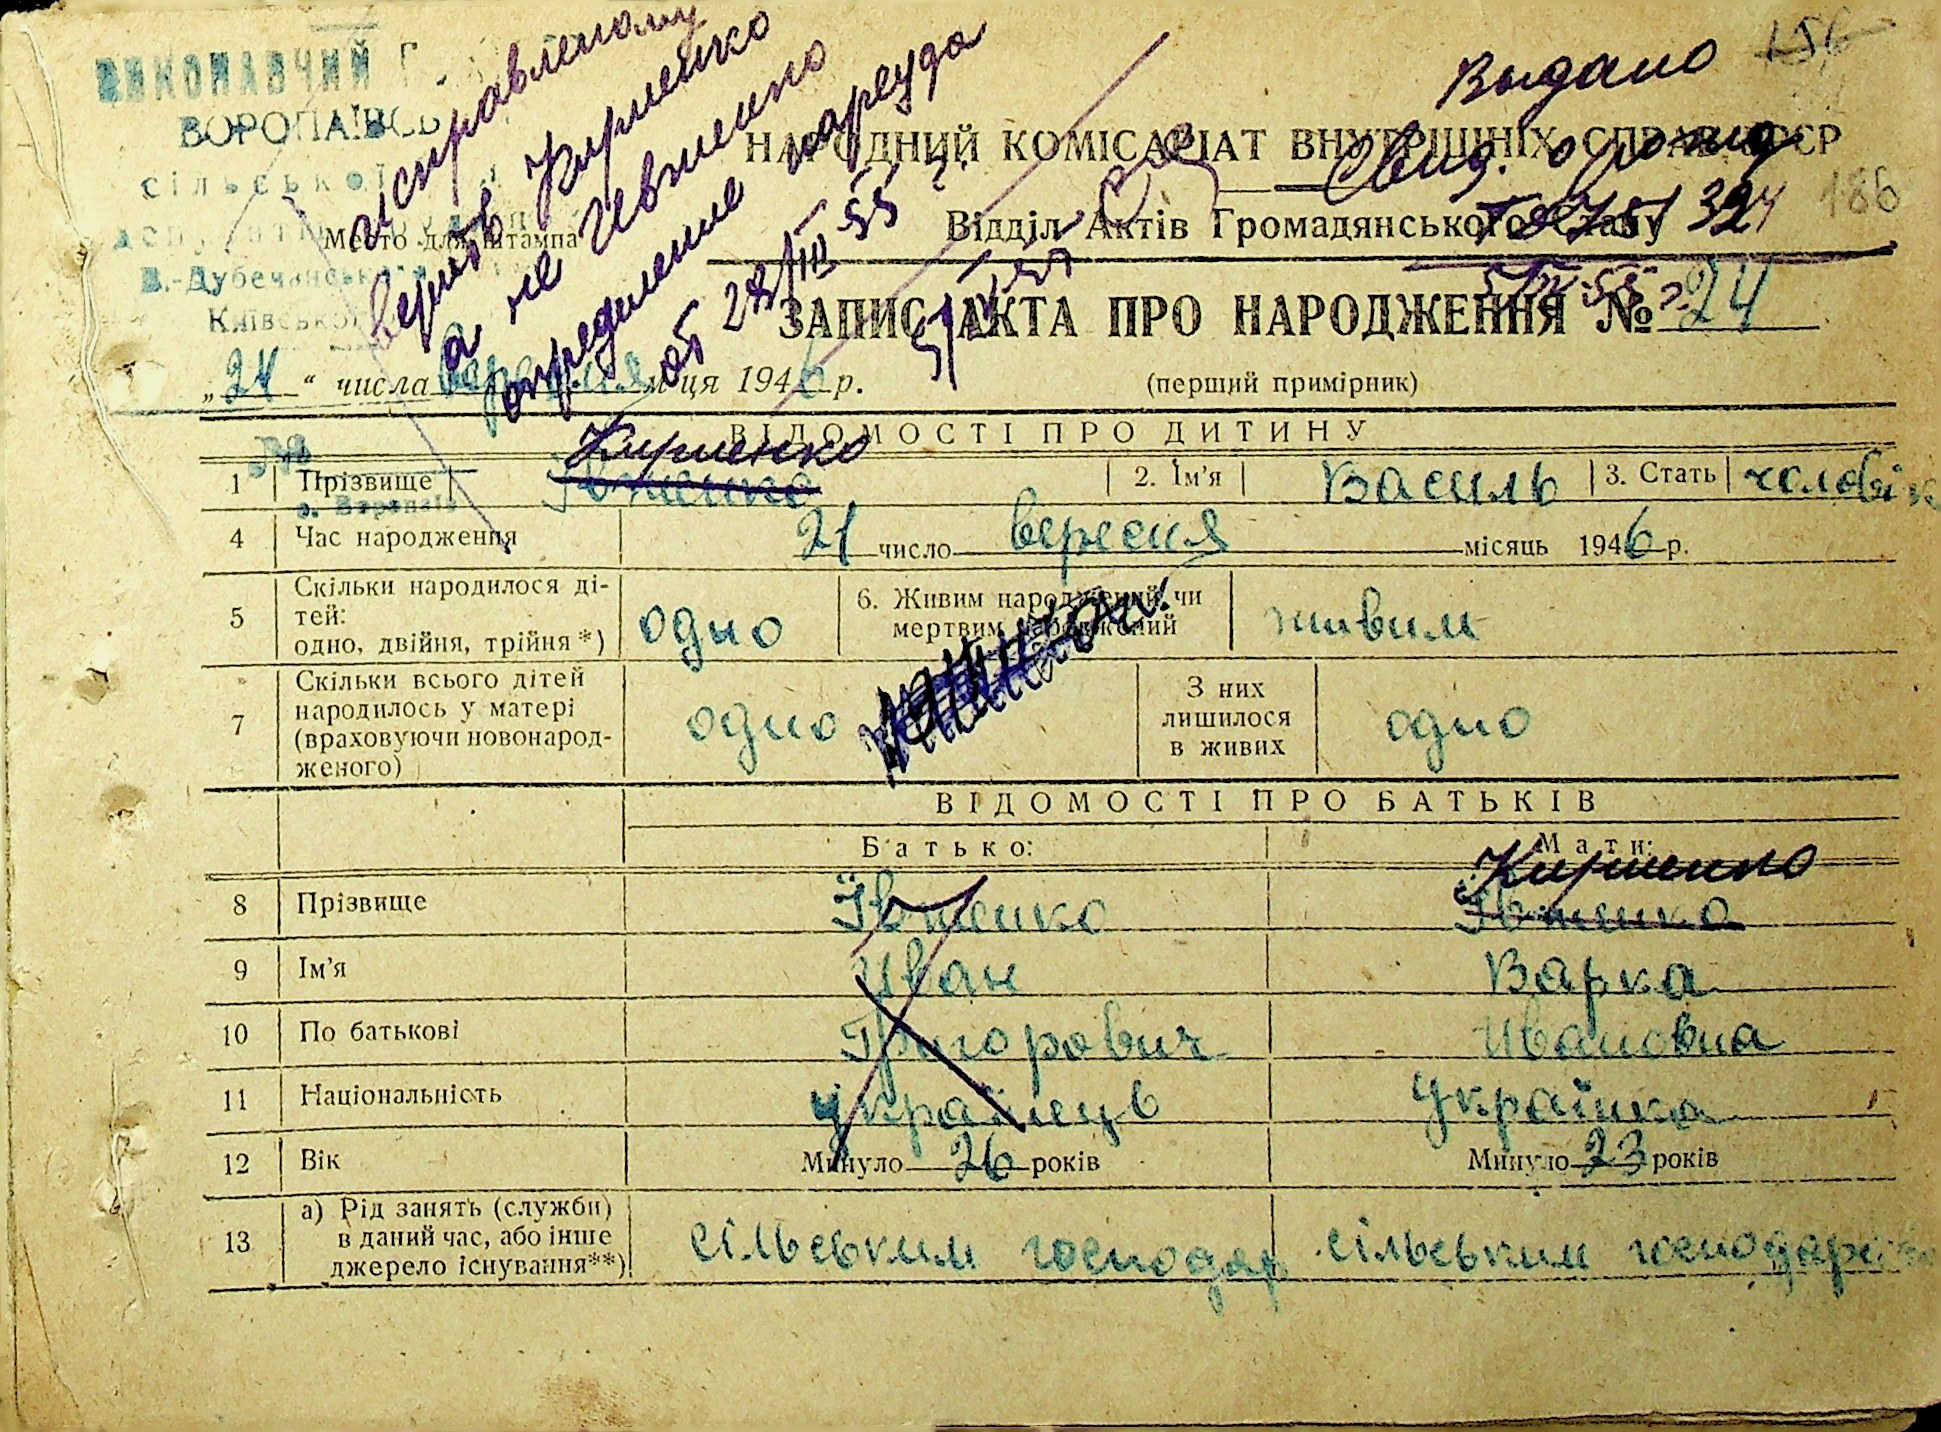 ВИКОНАВЧИЙ
ВОРОПАЇВСЬ
сільської
Место для штампа
В.-Дубечанськ
Київської
исправленому
верить Кириенко
а не Ивженко
определение нарсуда
от 28/III 55
Выдано
Свид. о рожд.
324
156
186
НАРОДНИЙ КОМІСАРІАТ ВНУТРІШНІХ СПРАВ УРСР
Відділ Актів Громадянського Стану
ЗАПИС АКТА ПРО НАРОДЖЕННЯ № 24
„24“ числа вересня м-ця 1946 р.
(перщий примірник)
ВІДОМОСТІ ПРО ДИТИНУ
Кириенко
1 Прізвище Івженко 2. Ім'я Василь 3. Стать чоловік
4 Час народження 21 число вересня місяць 1946 р.
5 Скільки народилося ді-
тей:
одно, двійня, трійня*) одно 6. Живим народжений чи
мертвим народжений живим
7 Скільки всього дітей
народилось у матері
(враховуючи новонарод-
женого) одно З них
лишилося
в живих одно
ВІДОМОСТІ ПРО БАТЬКІВ
Батько: Мати:
Кириенко
8 Прізвище Івженко Івженко
9 Ім'я Иван Варка
10 По батькові Григорович Ивановна
11 Національність українець українка
12 Вік Минуло 26 років Минуло 23 років
13 а) Рід занять (служби)
в даний час, або інше
джерело існування**) сільським господар сільським господарс